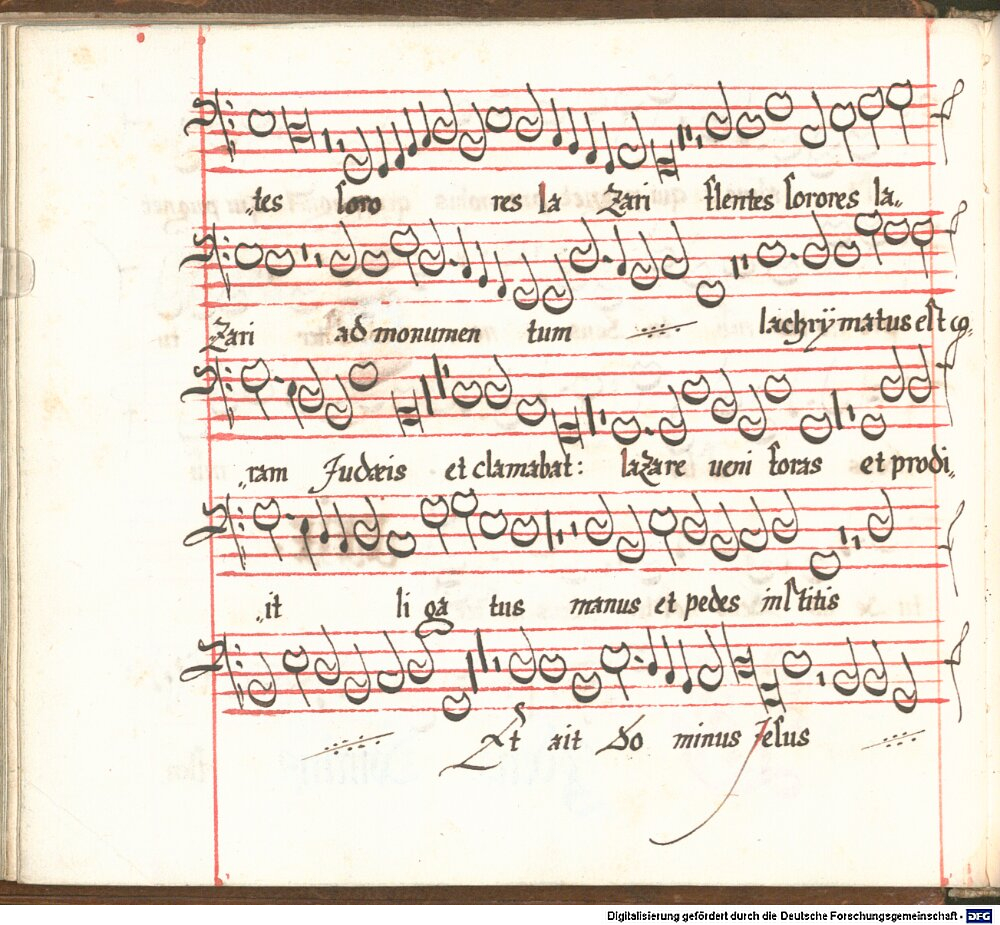 „tes soro res la Zari flentes sorores la„
Zari ad monumen tum lachrÿmatus est co„
„ram Judæis et clamabat: lazare ueni foras et prodi„
„it li ga tus manus et pedes institis
Et ait Do minus Jesus
Digitalisierung gefördert durch die Deutsche Forschungsgemeinschaft - DFG